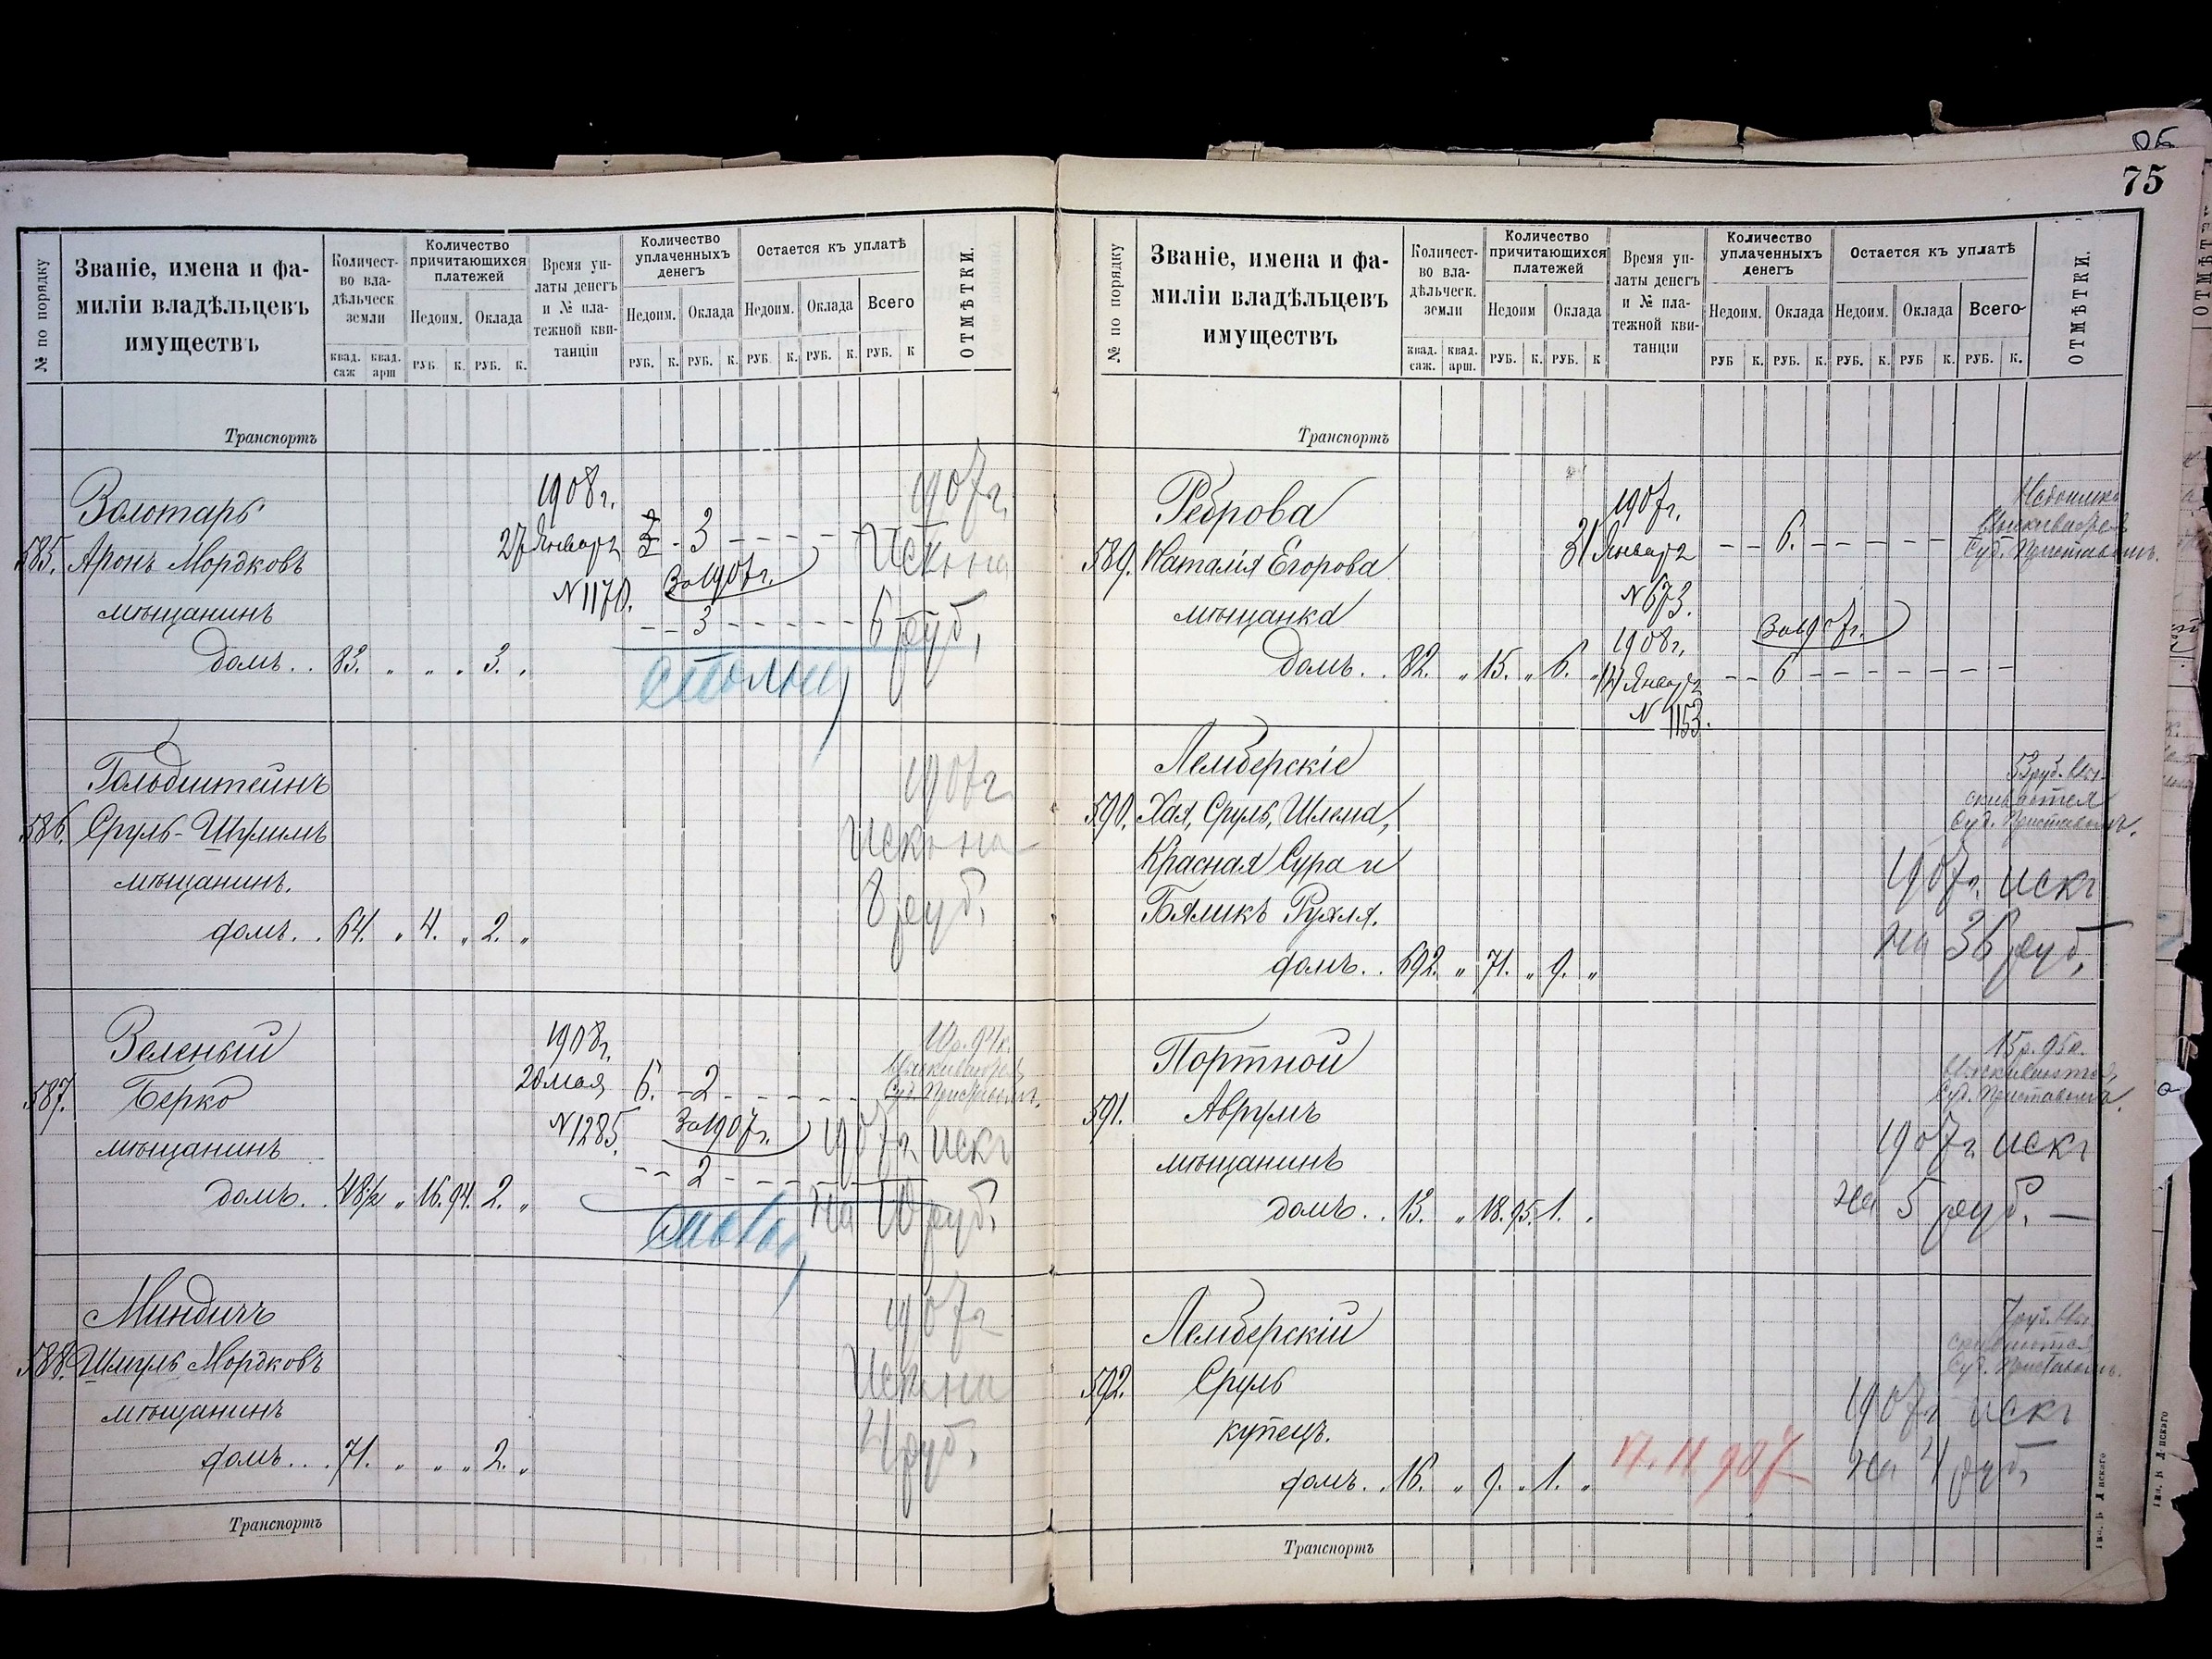 75
№ по порядку
Званіе, имена и фа-
миліи владѣльцевъ
имуществъ
Количест-
во вла-
дѣльческ.
земли
квад. саж. квад. арш
Количество
причитающихся
платежей
Недоим. Оклада
РУБ. К. РУБ. К.
Время уп-
латы денегъ
и № пла-
тежной кви-
танціи
Количество
уплаченныхъ
денегъ
Недоим. Оклада
РУБ. К. РУБ. К.
Остается къ уплатѣ
Недоим. Оклада Всего
РУБ. К. РУБ. К. РУБ. К
ОТМѢТКИ.
Транспортъ
Золотарь
585. Аронъ Мордковъ
мѣщанинъ
домъ.. 83. „ „ „ 3. „
1908 г.
27 Января
№ 1170.
3 - 3
За 1907 г.
3
1907 г.
Искъ на
6 руб.
Гольдштейнъ
586. Сруль-Шулимъ
мѣщанинъ.
домъ.. 64. „ 4. „ 2. „
1907 г
Искъ на
8 руб.
Зеленый
587. Берко
мѣщанинъ
домъ.. 48 1/2 „ 16. 94. 2. „
1908 г.
20 мая
№ 1285.
6. - 2
За 1907 г.
2
10 р. 94 к.
Взыскивается
Суд. Приставомъ.
1907 г искъ
на 10 руб.
Миндичъ
588. Шмуль Мордковъ
мѣщанинъ
домъ... 71. „ „ „ 2. „
1907 г
Искъ на
4 руб.
Транспортъ
№ по порядку
Званіе, имена и фа-
миліи владѣльцевъ
имуществъ
Количест-
во вла-
дѣльческ.
земли
квад. саж. квад. арш.
Количество
причитающихся
платежей
Недоим Оклада
РУБ. К. РУБ. К
Время уп-
латы денегъ
и № пла-
тежной кви-
танціи
Количество
уплаченныхъ
денегъ
Недоим. Оклада
РУБ К. РУБ. К.
Остается къ уплатѣ
Недоим. Оклада Всего
РУБ. К. РУБ К. РУБ. К.
ОТМѢТКИ.
Транспортъ
Реброва
589. Наталія Егорова
мѣщанка
домъ.. 82. „ 15. „ 6. „
1907 г.
31 Января
№ 673.
6.
1908 г.
За 1907 г.
Января
6
№ 1153.
Недоимка
Взыскивается
Суд. Приставомъ.
Лемберскіе
590. Хая, Сруль, Шлема,
Красная Сура и
Бяликъ Рухля.
домъ.. 692. „ 71. „ 9. „
53 руб. Взы-
скивается
Суд. Приставомъ.
1907 г. искъ
на 36 руб.
Портной
591. Аврумъ
мѣщанинъ
домъ.. 13. „ 18. 95. 1. „
15 р. 95 к.
Взыскивается
Суд. Приставомъ.
1907 г искъ
на 5 руб. —
Лемберскій
592. Сруль
купецъ.
домъ.. 16. „ 9. „ 1. „
7 руб. Взы-
скивается
Суд. Приставомъ.
1907 г искъ
на 4 руб.
Транспортъ